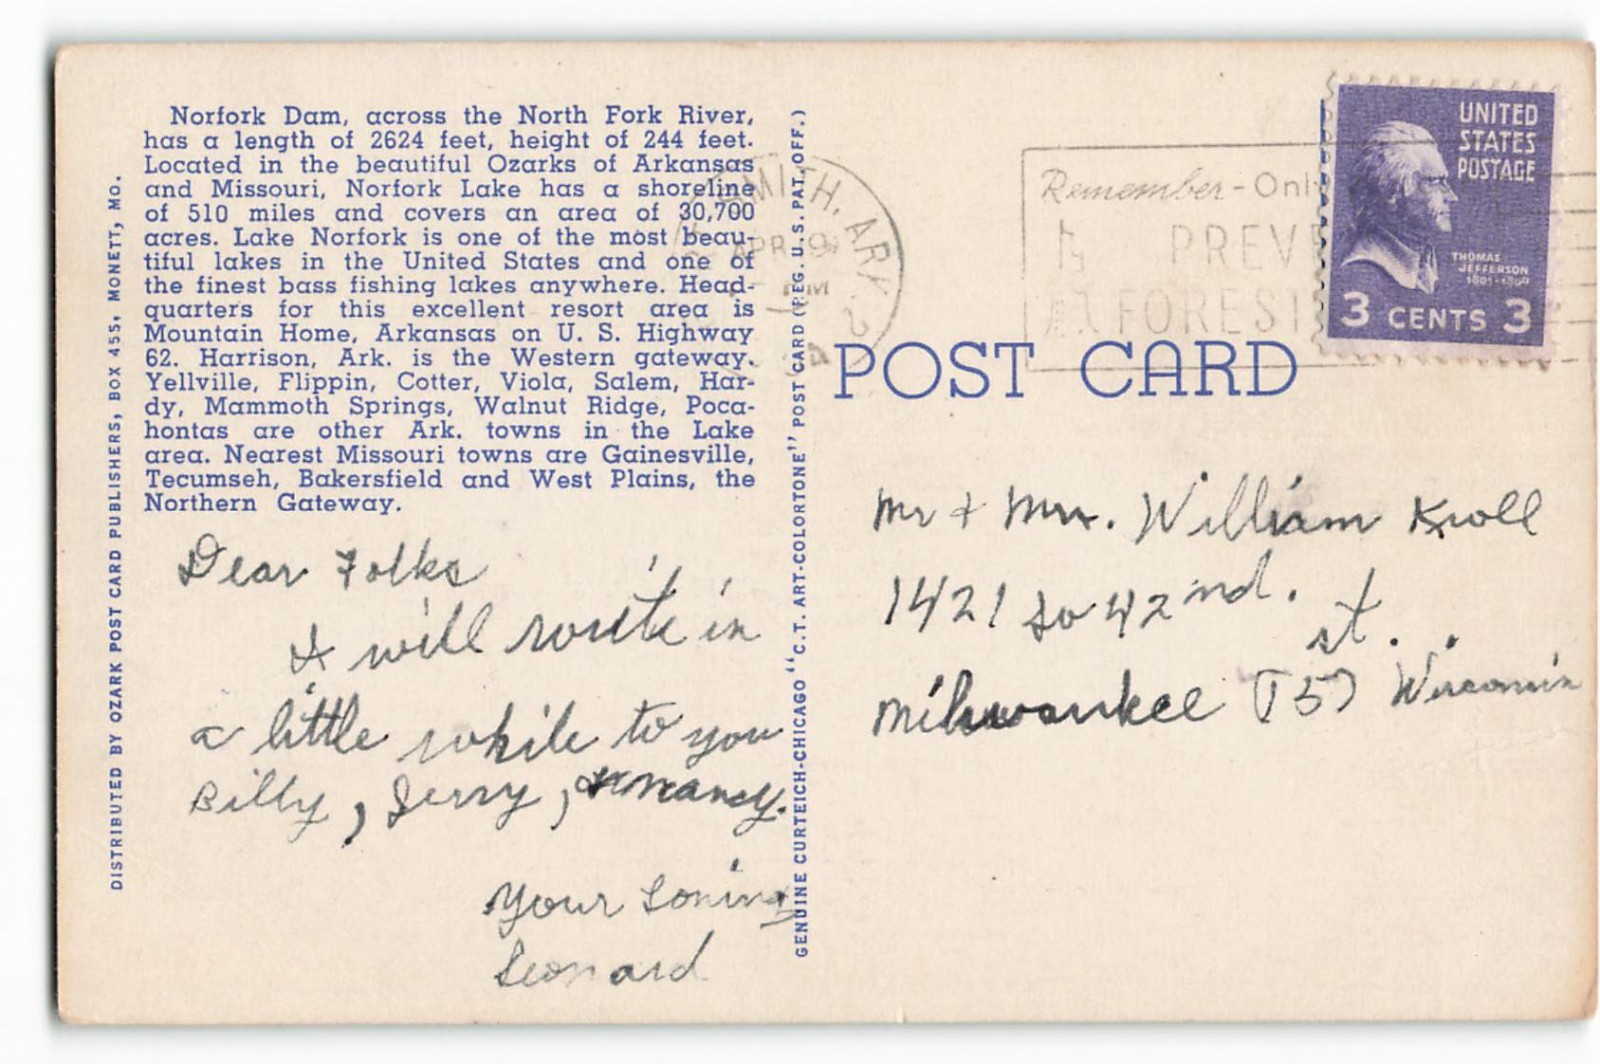 Norfork Dam, across the North Fork River,
has a length of 2624 feet, height of 244 feet.
Located in the beautiful Ozarks of Arkansas
and Missouri, Norfork Lake has a shoreline
of 510 miles and covers an area of 30,700
acres. Lake Norfork is one of the most beau-
tiful lakes in the United States and one of
the finest bass fishing lakes anywhere. Head-
quarters for this excellent resort area is
Mountain Home, Arkansas on U. S. Highway
62. Harrison, Ark. is the Western gateway.
Yellville, Flippin, Cotter, Viola, Salem, Har-
dy, Mammoth Springs, Walnut Ridge, Poca-
hontas are other Ark. towns in the Lake
area. Nearest Missouri towns are Gainesville,
Tecumseh, Bakersfield and West Plains, the
Northern Gateway.
DISTRIBUTED BY OZARK POST CARD PUBLISHERS, BOX 455, MONETT, MO.
Dear Folks
I will write in
a little while to you
Billy, Jerry, & nancy.
Your
Leonard
GENUINE CURTEICH-CHICAGO "C.T. ART-COLORTONE" POST CARD (REG. U.S. PAT. OFF.)
SMITH, ARK
APR 9
PM
Remember - Only
PREVE
FOREST
UNITED
STATES
POSTAGE
THOMAS
JEFFERSON
1801-1809
3 CENTS 3
POST CARD
Mr + Mrs. William Kroll
1421 So 42nd.
st.
Milwaukee (15) Wisconsin